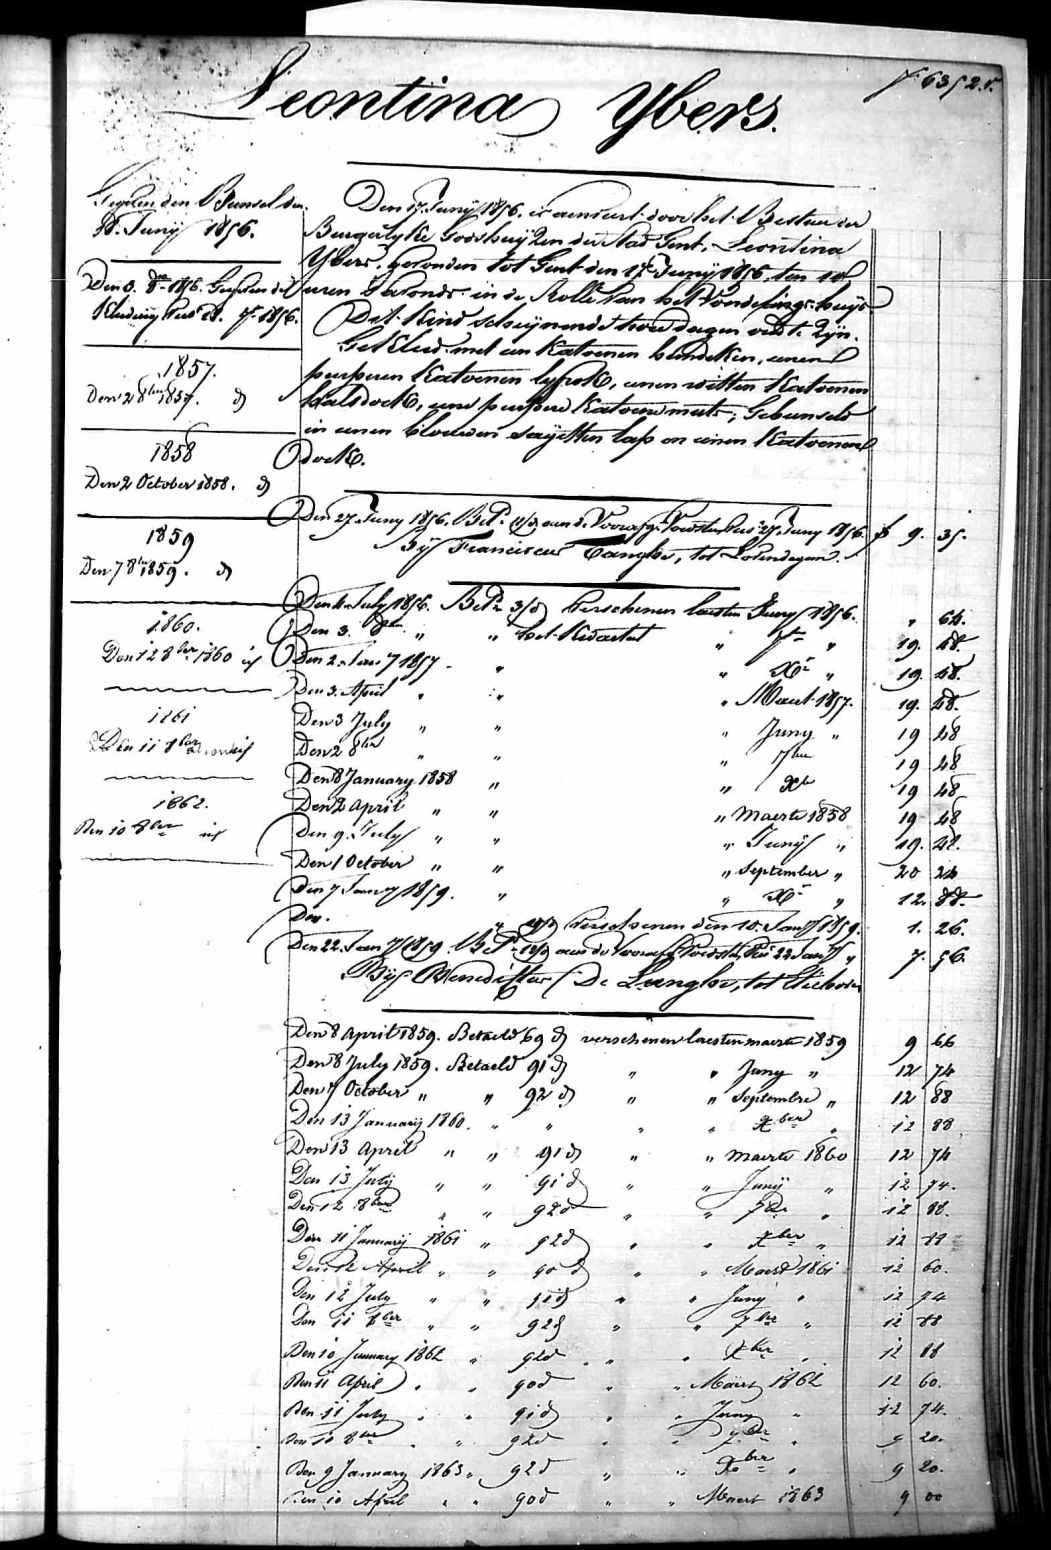 Leontina Ybers.
Gegeven den Bunsel den
Junij 1856.
Den 3. 8re 1856. Gegeven de
Kleding
1857.
Den 2 8ber 1857. d
1858
Den 2 October 1858. d
1859
Den 7 8ber 1859. d
1860.
Den 12 8ber 1860 id
1861
Den 11 8ber
1862.
Den 10 8ber id
Den 17 Junij 1856. is aenveert door het Bestuer der
Burgerlyke Godshuyzen der Stad Gent, Leontina
Ybers, gevonden tot Gent den 17 Junij 1856, ten 10
uren s'avonds in de Rolle van het Vondelings-huys
Dit kind schynende twee dagen oud te zyn.
Gekleed met een katoenen hemdeken, eenen
purperen katoenen lyfrok, eenen witten katoenen
halsdoek, eene purpere katoene muts; Gebunseld
in eenen blouwen sayetten lap en eenen katoenen
doek.
Den 27 Juny 1856. Betd aen de Voorzge Voedster 27 Juny 1856. f 9. 35.
By Franciscus Tanghe, tot Lovendegem.
Den July 1856. Betd 3/d verschenen laesten Juny 1856. " 64.
Den 3. 8re " " het Kwartael " 7re " 19. 48.
Den 2. Jany 1857. " " Xr " 19. 48.
Den 3. April " " " Maert 1857. 19. 48.
Den 3 July " " " Juny " 19 48
Den 2 8ber " " " 7ber 19 48
Den 8 January 1858 " " Xbr 19 48
Den 2 April " " " maerte 1858 19 48
Den 9. July " " " Junij " 19. 48.
Den 1 October " " " September " 20 24
Den 7 Jany 1859. " " Xr " 12. 88.
Den. " verschenen den 10. Jany 1859. 1. 26.
Den 22. Jany 1859. Betd aen de Voorzge Voedster 22 Jany " 7. 56.
By Benedictus De Langhe, tot
Den 8 April 1859. Betaeld 69 d verschenen laesten maerte 1859 9 66
Den 8 July 1859. Betaeld 91 d " " Juny " 12 74
Den 7 October " " 92 d " " Septembre " 12 88
Den 13 Januarij 1860. " " " " Xber " 12 88
Den 13 April " " 91 d " " maerte 1860 12 74
Den 13 July " " 91 d " " Junij " 12 74.
Den 12 8ber " " 92 d " " 7br " 12 88.
Den 11 Januarij 1861 " 92 d " " Xber " 12 88
Den 12 April " " 90 d " " Maerte 1861 12 60.
Den 12 July " " 91 d " " Juny " 12 74
Den 11 8ber " " 92 d " " 7br " 12 88
Den 10 January 1862 " 92 d " " Xber " 12 88
Den 11 April " " 90 d " " Maert 1862 12 60.
Den 11 July " " 91 d " " Juny " 12 74.
Den 10 8ber " " 92 d " " 7br " 9 20.
Den 9 January 1863 " 92 d " " Xber " 9 20.
Den 10 April " " 90 d " " Maert 1863 9 00